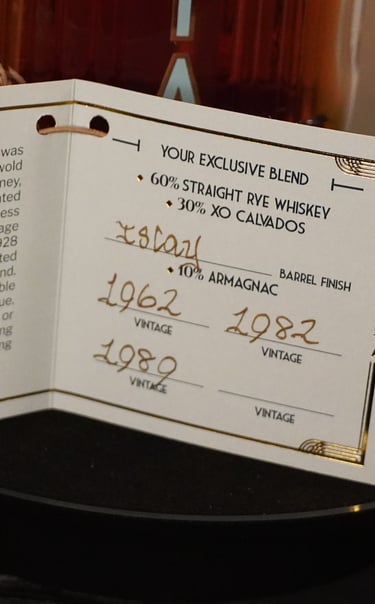 IA
was
wold
ney,
ted
ess
age
928
ted
nd.
ble
ue.
or
ng
ng
YOUR EXCLUSIVE BLEND
60% STRAIGHT RYE WHISKEY
30% XO CALVADOS
Islay BARREL FINISH
10% ARMAGNAC
1962 1982
VINTAGE VINTAGE
1989
VINTAGE VINTAGE